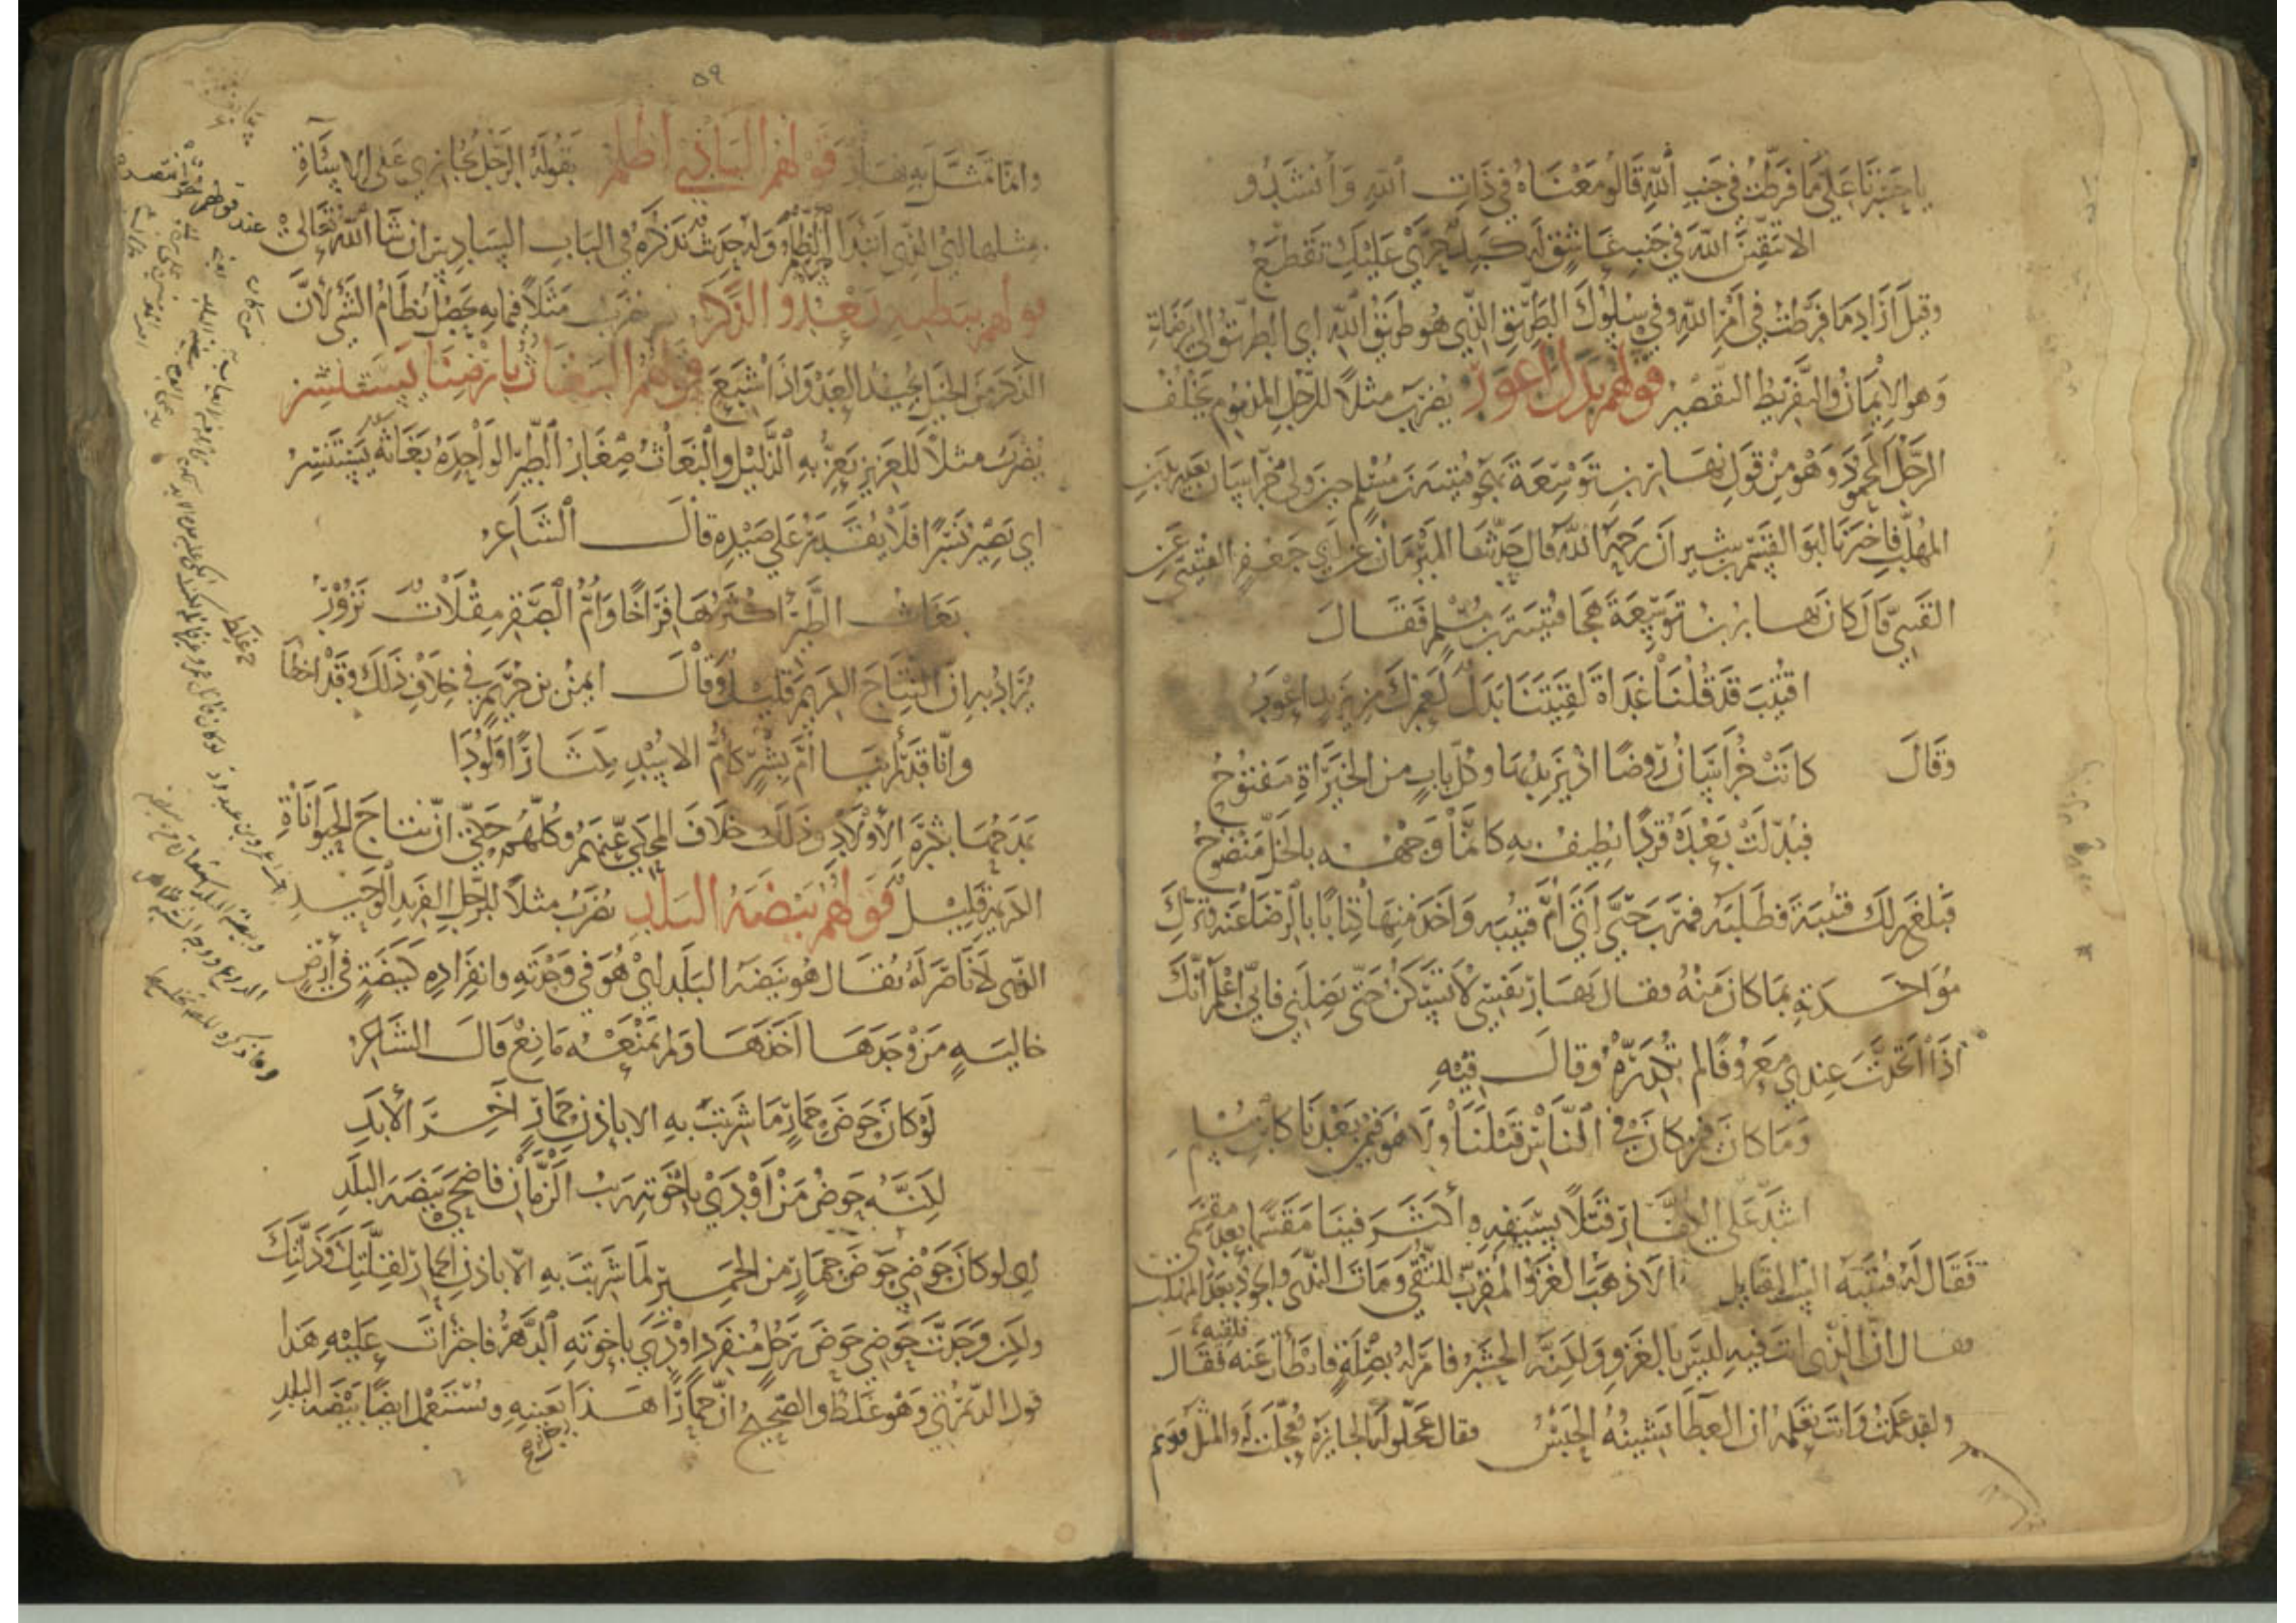 يا حسرتا على ما فرطت في جنب الله قالوا معناه في ذات الله وأنشدوا
ألا تتقين الله في جنب عاشق له كبد حرى عليك تقطع
وقيل أراد ما فرطت في أمر الله وفي سلوك الطريق الذي هو طريق الله أي الطريق إلى مرضاته
وهو الإيمان والتفريط التقصير قولهم بدل أعور يضرب مثلا للرجل المذموم يخلف
الرجل المحمود وهو من قول نهار بن توسعة يهجو قتيبة بن مسلم حين ولي خراسان بعد يزيد بن
المهلب فأخبرنا أبو القسم بن شيران رحمه الله قال حدثنا المبرمان عن أبي جعفر عن
القتبي قال كان نهار بن توسعة هجا قتيبة بن مسلم فقال
أقتيب قد قلنا غداة لقيتنا بدل لعمرك من يزيد أعور
وقال كانت خراسان روضا إذ يزيد بها وكل باب من الخيرات مفتوح
فبدلت بعده قردا يطيف به كأنما وجهه بالخل منضوح
فبلغ ذلك قتيبة فطلبه فهرب حتى أتى أم قتيبة وأخذ منها كتابا بالرضا عنه وترك
مؤاخذته بما كان منه فقال نهار نفسي لا تسكن حتى تصلني فإني أعلم أنك
إذا اتخذت عندي معروفا لم تكدره وقال فيه
وما كان فيمن كان في الناس قبلنا ولا هو فيمن بعدنا كابن مسلم
أشد على الكفار قتلا بسيفه وأكثر فينا مقسما بعد مقسم
فقال له قتيبة ألست القائل ألا ذهب الغزو المقرب للتقى ومات الندى والجود بعد المهلب
فقال إن الذي أنت فيه ليس بالغزو ولكنه الحشر فأمر له بصلة فأبطأت عنه فلقيه فقال
ولقد علمت وأنت تعلمه أن العطاء يشينه الحبس فقال عجلوا له الجائزة فعجلت له والمثل قديم
٥٩
وإنما تمثل به نهار قولهم البادي أظلم يقوله الرجل يجازي على الإساءة
بمثلها أي الذي ابتدأ الظلم وله حديث نذكره في الباب السادس إن شاء الله تعالى
قولهم ببطنه يعدو الذكر يضرب مثلا فيما به يحصل نظام الشيء لأن
الذكر من الخيل يجيد العدو إذا أشبع قولهم البغاث بأرضنا يستنسر
يضرب مثلا للعزيز يعز به الذليل والبغاث صغار الطير الواحدة بغاثة يستنسر
أي يصير نسرا فلا يقدر على صيده قال الشاعر
بغاث الطير أكثرها فراخا وأم الصقر مقلات نزور
يراد به أن النتاج الكريم قليل وقال أيمن بن خريم في خلاف ذلك وقد أخطأ
وإنا قد رأينا أم بشر كأم الأسد مذكارا ولودا
يمدحها بكثرة الأولاد وذلك خلاف المحكي عنهم وكلهم حكى أن نتاج الحيوانات
الكريمة قليل قولهم بيضة البلد يضرب مثلا للرجل الفريد الوحيد
الذي لا ناصر له يقال هو بيضة البلد أي هو في وحدته وانفراده كبيضة في أرض
خالية من وجدها أخذها ولم يمنعه مانع قال الشاعر
لو كان حوض حمار ما شربت به إلا بإذن حمار آخر الأبد
لكنه حوض من أودى بإخوته ريب الزمان فأضحى بيضة البلد
أي لو كان حوضي حوض حمار من الحمير لما شربت به إلا بإذن الحمار لقلتك وذلتك
ولكن وجدت حوضي حوض رجل منفرد أودى بإخوته الدهر فاجترأت عليه هذا
قول وهو غلط والصحيح أن حمارا هذا رجل بعينه وتستعمل أيضا بيضة البلد
غلط